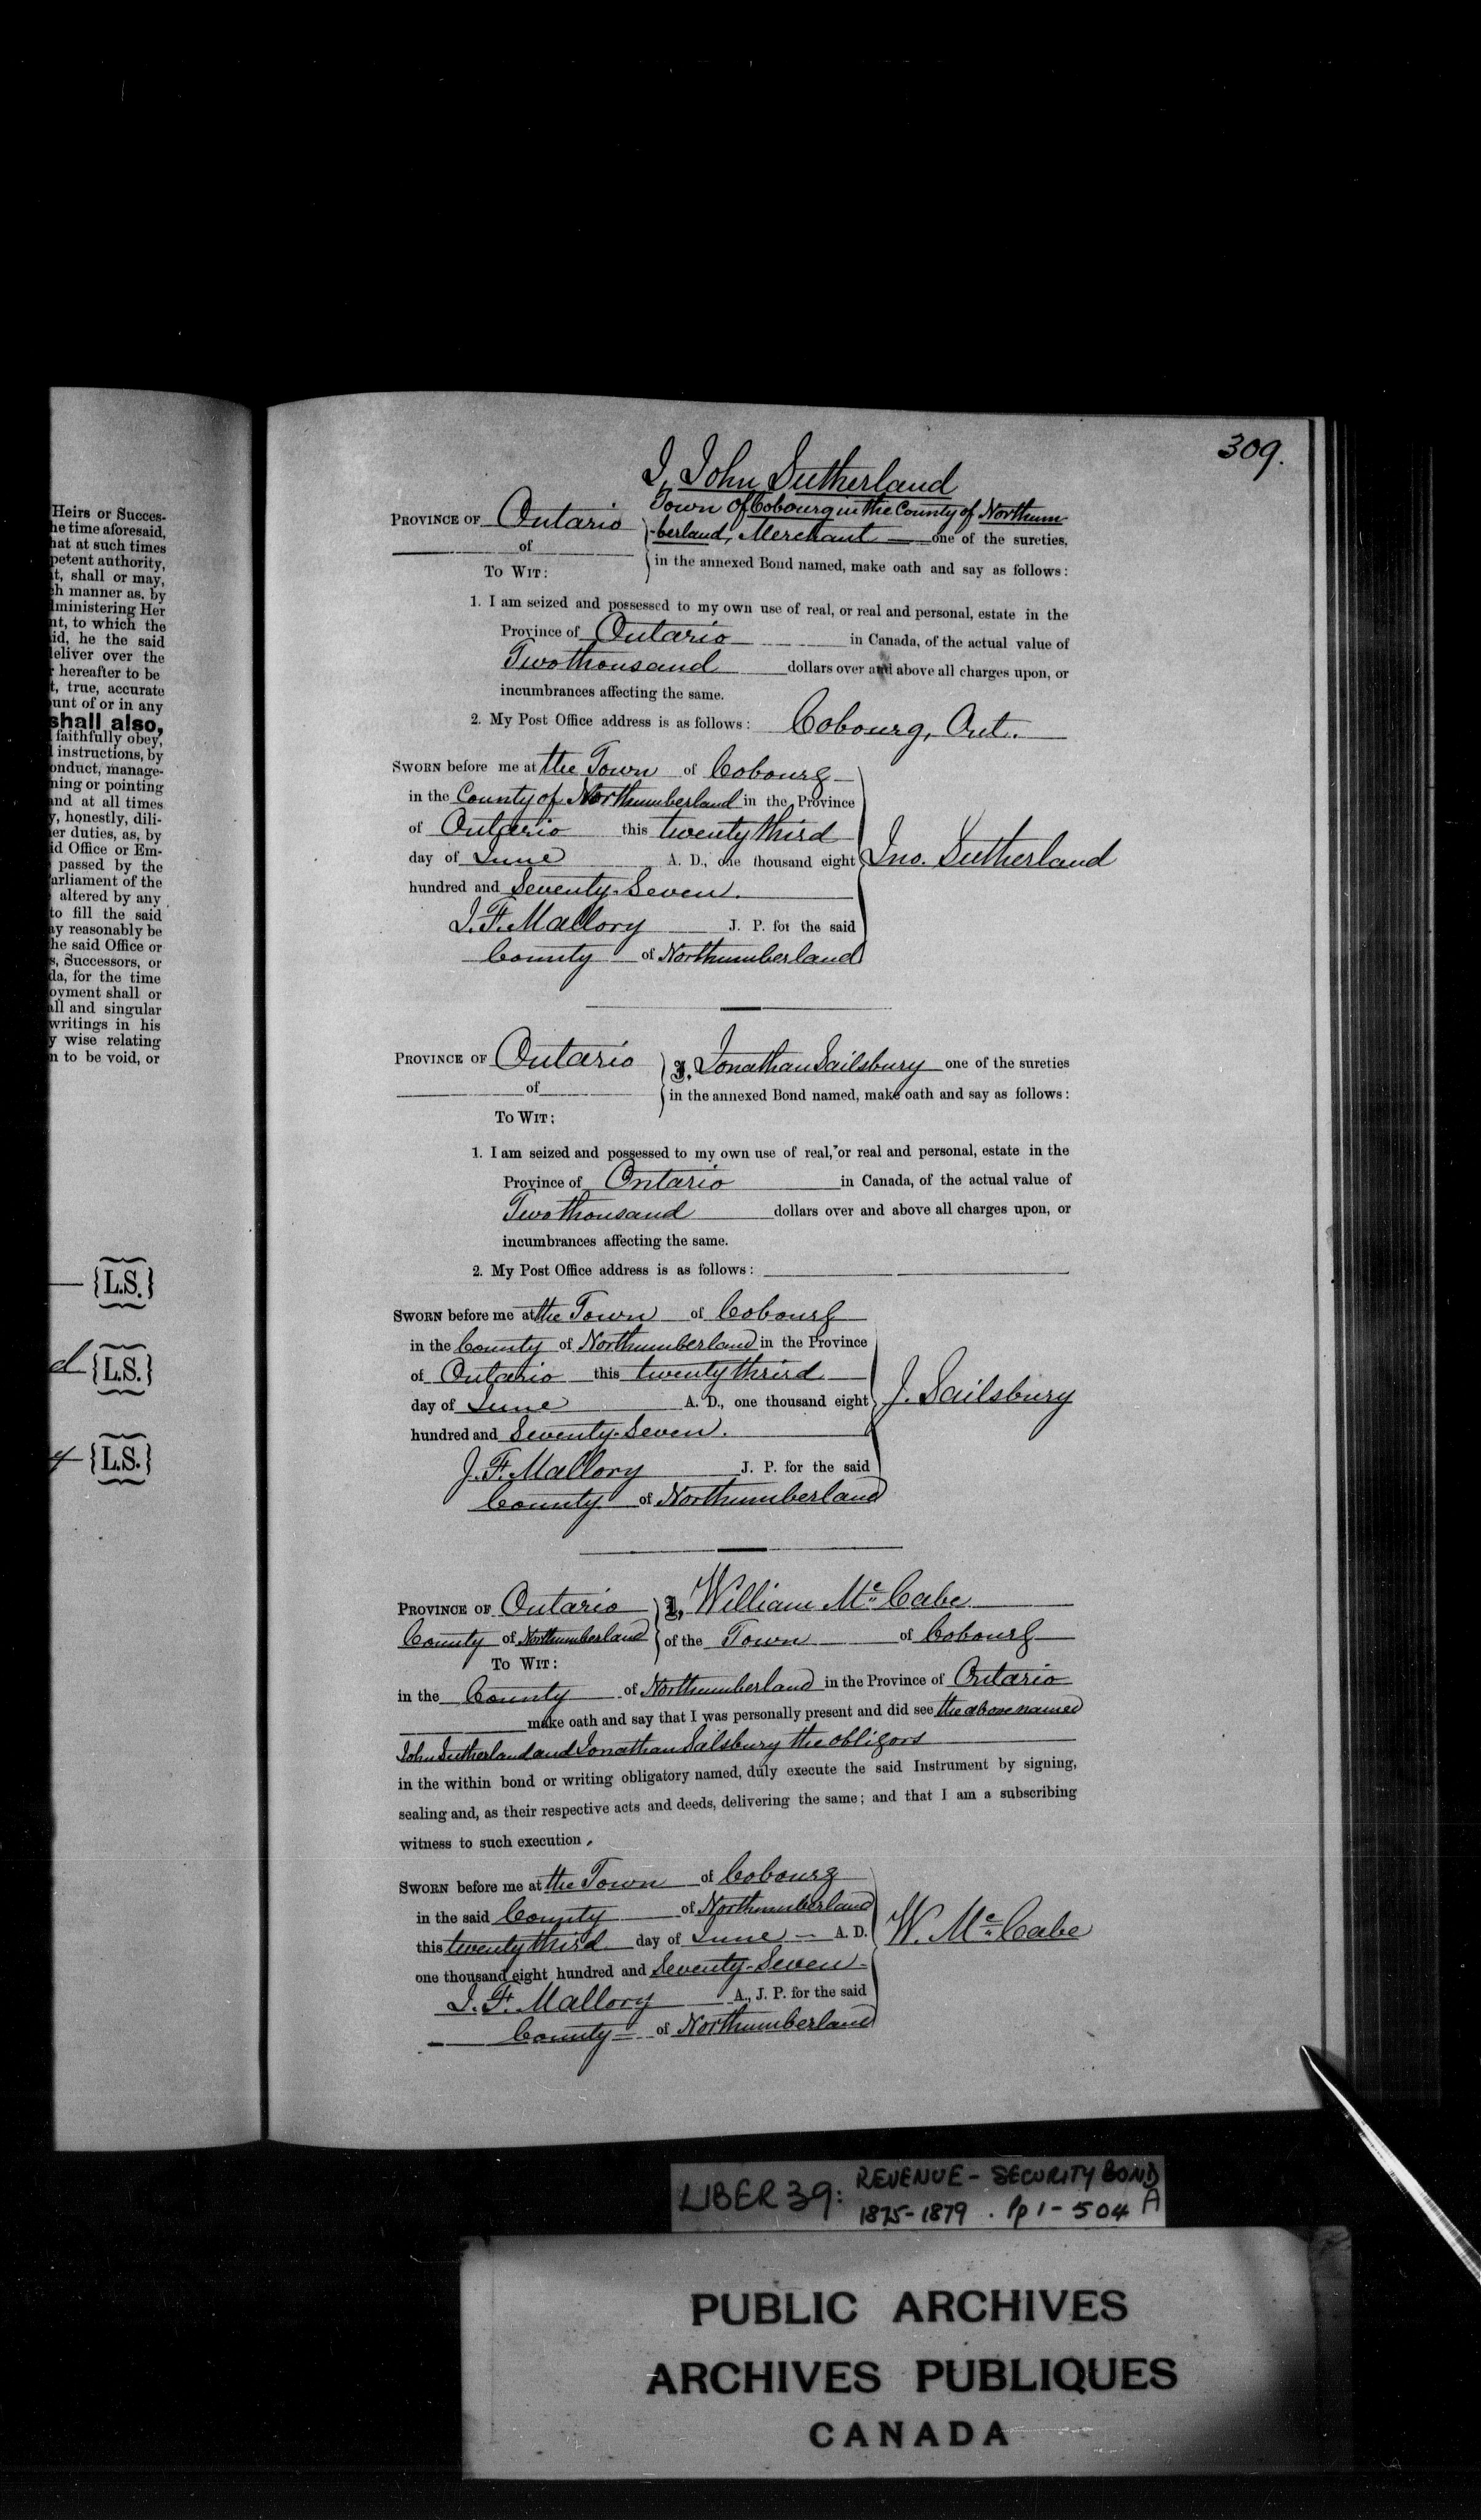 Heirs or Succes-
he time aforesaid,
hat at such times
petent authority,
t, shall or may,
ch manner as, by
dministering Her
nt, to which the
id, he the said
deliver over the
r hereafter to be
t, true, accurate
ount of or in any
shall also,
faithfully obey,
l instructions, by
onduct, manage-
ning or pointing
and at all times
y, honestly, dili-
er duties, as, by
id Office or Em-
passed by the
arliament of the
altered by any
to fill the said
ay reasonably be
he said Office or
s, Successors, or
da, for the time
oyment shall or
all and singular
writings in his
y wise relating
n to be void, or
{L.S.}
d {L.S.}
y {L.S.}
309.
I, John Sutherland
Town of Cobourg in the County of Northum
PROVINCE OF Ontario -berland, Merchant one of the sureties,
of
in the annexed Bond named, make oath and say as follows:
TO WIT:
1. I am seized and possessed to my own use of real, or real and personal, estate in the
Province of Ontario in Canada, of the actual value of
Two thousand dollars over and above all charges upon, or
incumbrances affecting the same.
2. My Post Office address is as follows: Cobourg, Ont.
SWORN before me at the Town of Cobourg
in the County of Northumberland in the Province
of Ontario this twenty third
day of June A. D., one thousand eight Jno. Sutherland
hundred and Seventy-Seven.
J. F. Mallory J. P. for the said
County of Northumberland
PROVINCE OF Ontario I, Jonathan Sailsbury one of the sureties
of
in the annexed Bond named, make oath and say as follows:
TO WIT:
1. I am seized and possessed to my own use of real, or real and personal, estate in the
Province of Ontario in Canada, of the actual value of
Two thousand dollars over and above all charges upon, or
incumbrances affecting the same.
2. My Post Office address is as follows:
SWORN before me at the Town of Cobourg
in the County of Northumberland in the Province
of Ontario this twenty third
day of June A. D., one thousand eight J. Sailsbury
hundred and Seventy-Seven.
J. F. Mallory J. P. for the said
County of Northumberland
PROVINCE OF Ontario I, William McCabe
County of Northumberland of the Town of Cobourg
TO WIT:
in the County of Northumberland in the Province of Ontario
make oath and say that I was personally present and did see the above named
John Sutherland and Jonathan Sailsbury the obligors
in the within bond or writing obligatory named, duly execute the said Instrument by signing,
sealing and, as their respective acts and deeds, delivering the same; and that I am a subscribing
witness to such execution.
SWORN before me at the Town of Cobourg
in the said County of Northumberland
this twenty third day of June A. D. W. McCabe
one thousand eight hundred and Seventy-Seven
J. F. Mallory A., J. P. for the said
County of Northumberland
LIBER 39: REVENUE - SECURITY BOND
1875-1879 . Pp 1-504 A
PUBLIC ARCHIVES
ARCHIVES PUBLIQUES
CANADA